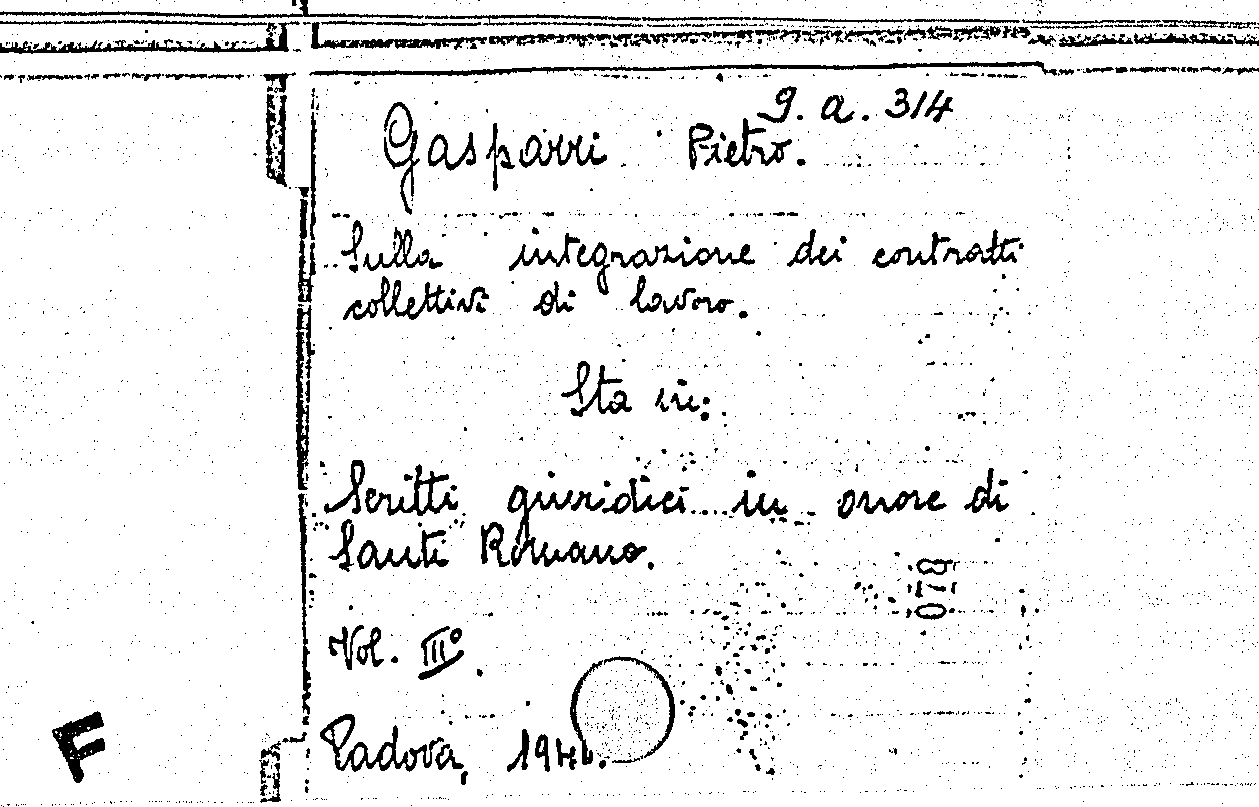 G. a. 314
Gasparri Pietro.
Sulla integrazione dei contratti
collettivi di lavoro.
Sta in:
Scritti giuridici in onore di
Santi Romano.
078
Vol. IIIº.
Padova,
F